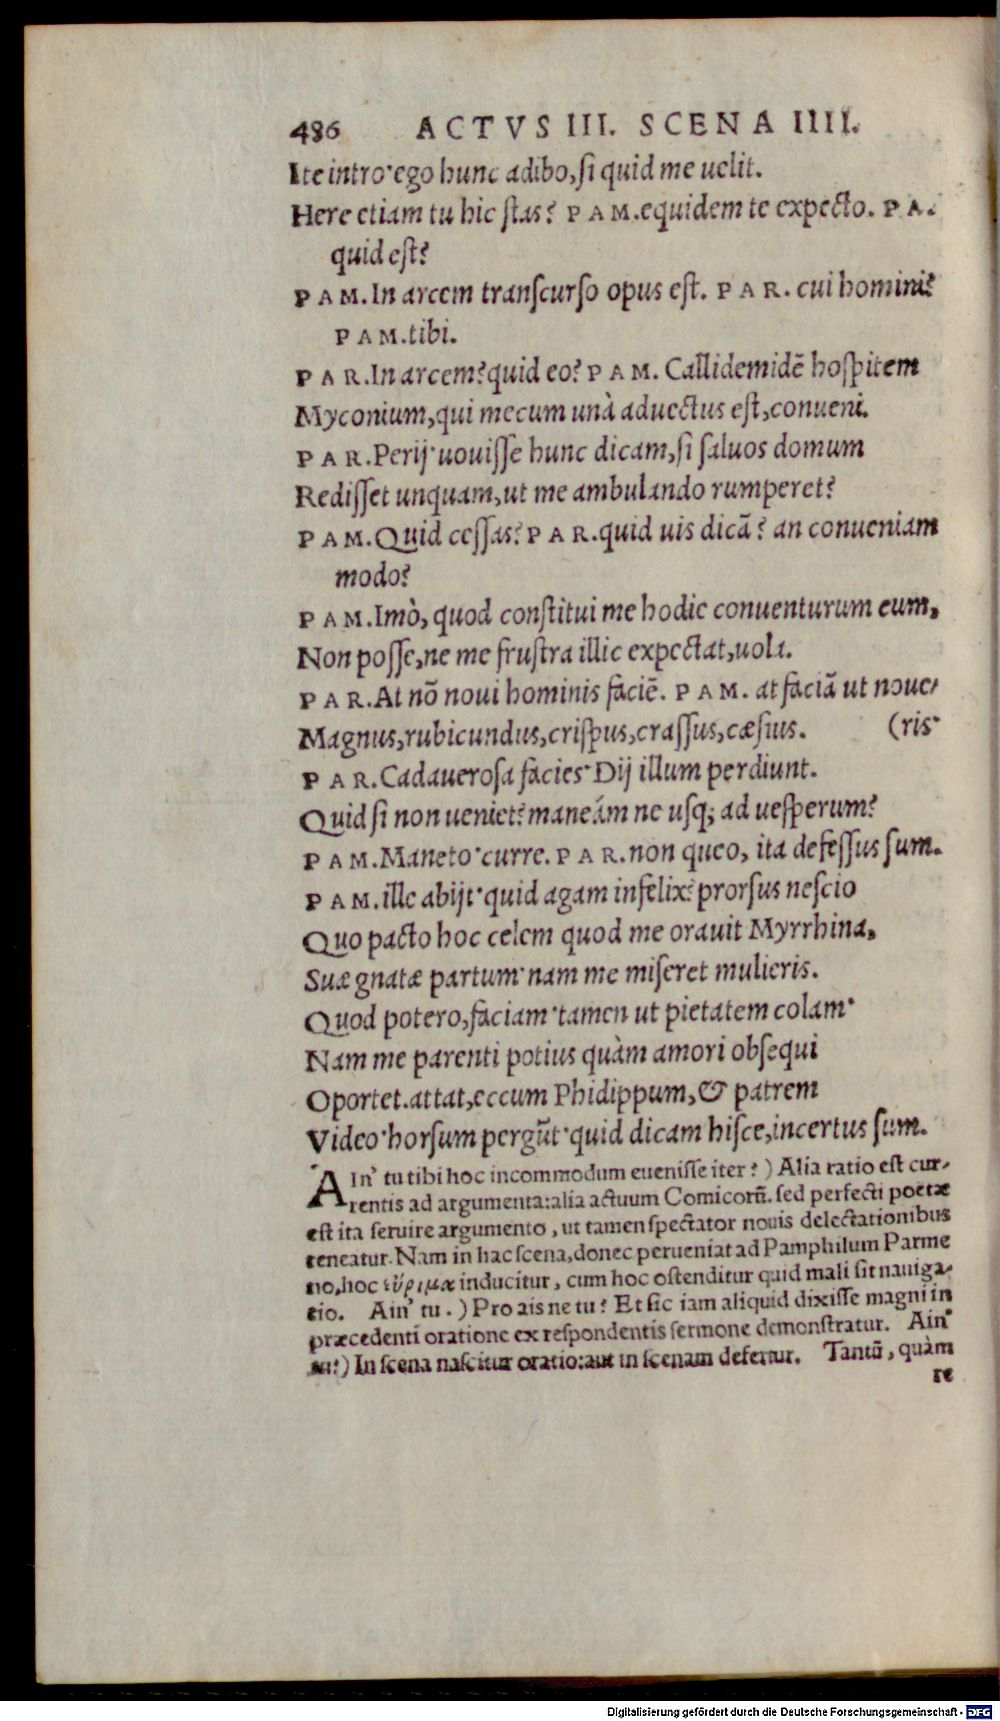 486 ACTVS III. SCENA IIII.
Ite intro·ego hunc adibo,si quid me uelit.
Here etiam tu hic stas? PAM.equidem te expecto. PA.
quid est?
PAM.In arcem transcurso opus est. PAR. cui homini?
PAM.tibi.
PAR.In arcem?quid eo? PAM. Callidemidē hospitem
Myconium,qui mecum unà aduectus est,conueni.
PAR.Perij·uouisse hunc dicam,si saluos domum
Redisset unquam,ut me ambulando rumperet?
PAM.Quid cessas?PAR.quid uis dicā? an conueniam
modo?
PAM.Imò, quod constitui me hodie conuenturum eum,
Non posse,ne me frustra illic expectat,uola.
PAR.At nō noui hominis faciē. PAM. at faciā ut noue/
Magnus,rubicundus,crispus,crassus,cæsius. (ris·
PAR.Cadauerosa facies·Dij illum perdiunt.
Quid si non ueniet?maneám ne usq; ad uesperum?
PAM.Maneto·curre.PAR.non queo, ita defessus sum.
PAM.ille abijt·quid agam infelix?prorsus nescio
Quo pacto hoc celem quod me orauit Myrrhina,
Suæ gnatæ partum·nam me miseret mulieris.
Quod potero,faciam·tamen ut pietatem colam·
Nam me parenti potius quàm amori obsequi
Oportet.attat,eccum Phidippum,& patrem
Video·horsum pergūt·quid dicam hisce,incertus sum.
AIn' tu tibi hoc incommodum euenisse iter?) Alia ratio est cur-
rentis ad argumenta:alia actuum Comicorū. sed perfecti poetæ
est ita seruire argumento, ut tamen spectator nouis delectationibus
teneatur. Nam in hac scena,donec perueniat ad Pamphilum Parme
no,hoc εὕριμα inducitur, cum hoc ostenditur quid mali sit nauiga-
tio. Ain' tu.) Pro ais ne tu? Et sic iam aliquid dixisse magni in
præcedenti oratione ex respondentis sermone demonstratur. Ain'
tu?) In scena nascitur oratio:aut in scenam defertur. Tantū, quàm
re
Digitalisierung gefördert durch die Deutsche Forschungsgemeinschaft - DFG